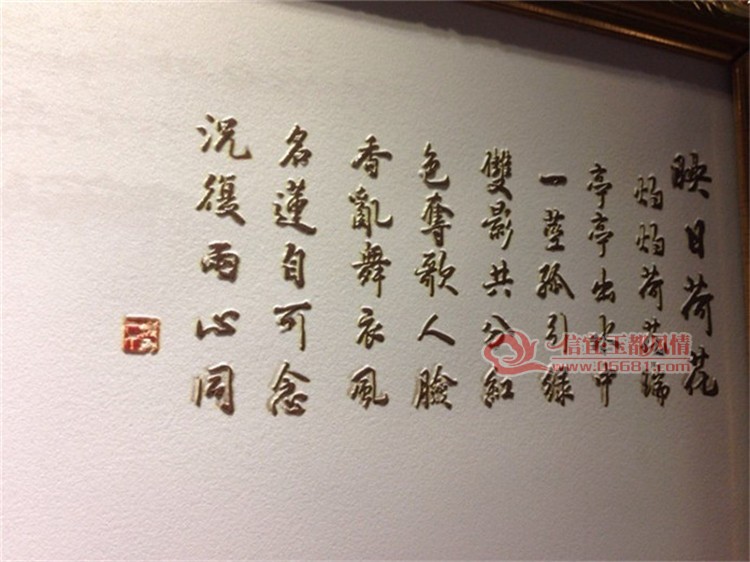 映日荷花
灼灼荷花瑞
亭亭出水中
一莖孤引綠
雙影共分紅
色奪歌人臉
香亂舞衣風
名蓮自可念
況復兩心同
信宜玉都风情
www.05681.com